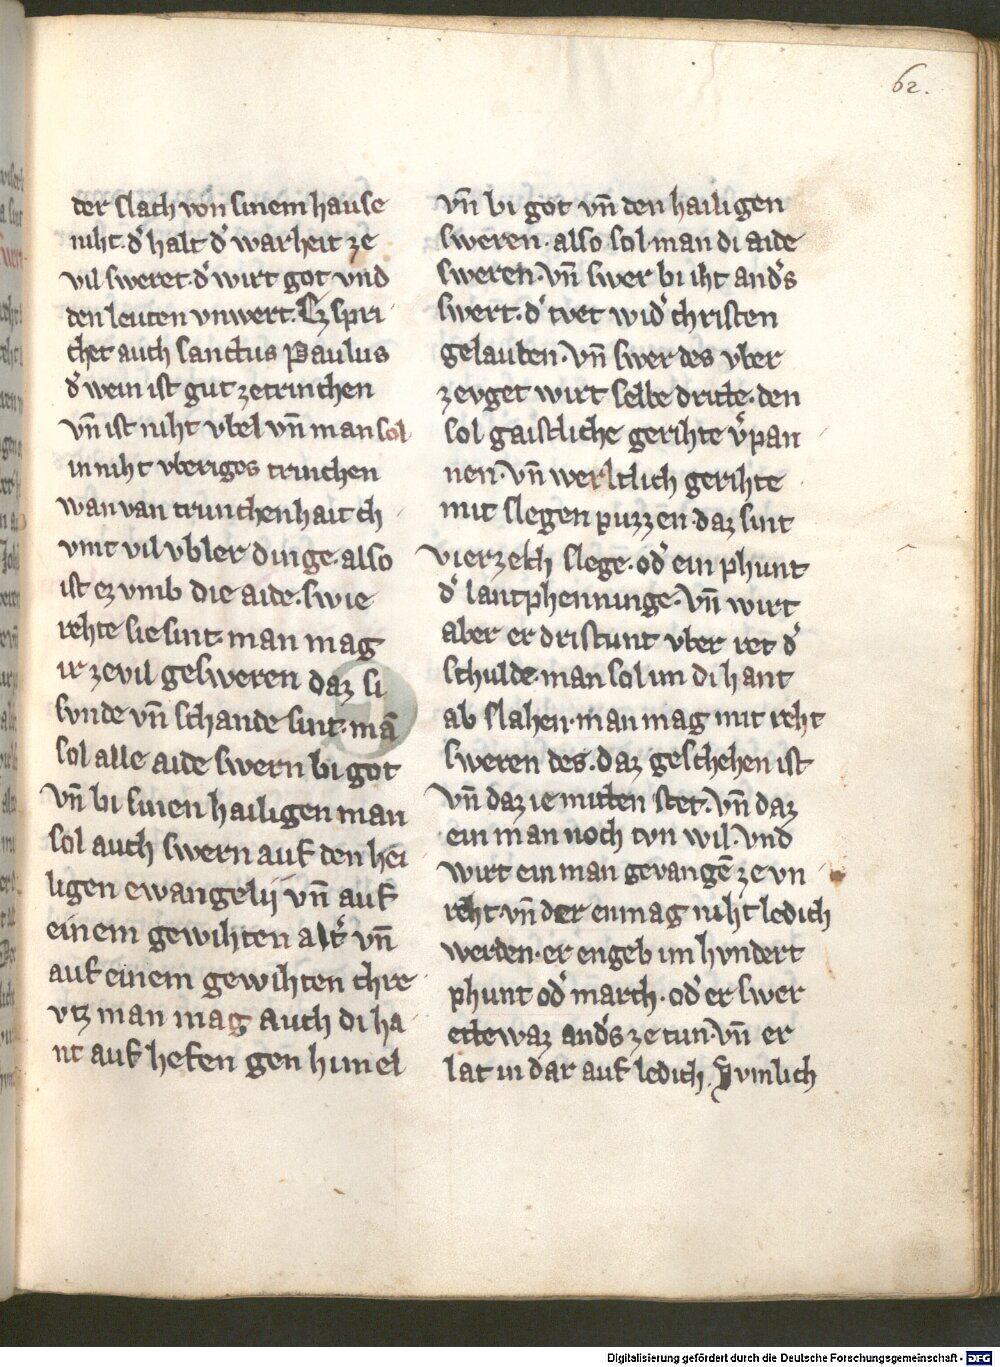 62.
der slach von sinem hause
niht. d͛ halt d͛ warheit ze
vil sweret. d͛ wirt got vnd
den leuten vnwert. Ez spri
chet auch sanctus Paulus
d͛ wein ist gut zetrinchen
vn̄ ist niht vbel vn̄ man sol
in niht vberiges trinchen
wan van trunchenhait ch
vmt vil vbler dinge. also
ist ez vmb die aide. swie
rehte sie sint. man mag
ir zevil gesweren daz si
svnde vn̄ schande sint. mā
sol alle aide swern bi got
vn̄ bi sinen hailigen man
sol auch swern auf den hei
ligen ewangelij vn̄ auf
einem gewihten alt͛ vn̄
auf einem gewihten chre
vtz man mag auch di ha
nt auf hefen gen himel
vn̄ bi got vn̄ den hailigen
sweren. also sol man di aide
sweren. vn̄ swer bi iht and͛s
swert. d͛ tvet wid͛ christen
gelauben. vn̄ swer des vber
zevget wirt selbe dritte. den
sol gaistliche gerihte v͛pan
nen. vn̄ werltlich gerihte
mit slegen puzzen. daz sint
vierzech slege. od͛ ein phunt
d͛ lantphenninge. vn̄ wirt
aber er dristunt vber ret d͛
schulde. man sol im di hant
ab slahen. man mag mit reht
sweren des. daz geschehen ist
vn̄ daz ie mitten stet. vn̄ daz
ein man noch tvn wil. vnd
wirt ein man gevangē ze vn
reht. vn̄ der enmag niht ledich
werden. er engeb im hvndert
phunt od͛ march. od͛ er swer
ettewaz and͛s ze tun. vn̄ er
lat in dar auf ledich.
Digitalisierung gefördert durch die Deutsche Forschungsgemeinschaft - DFG